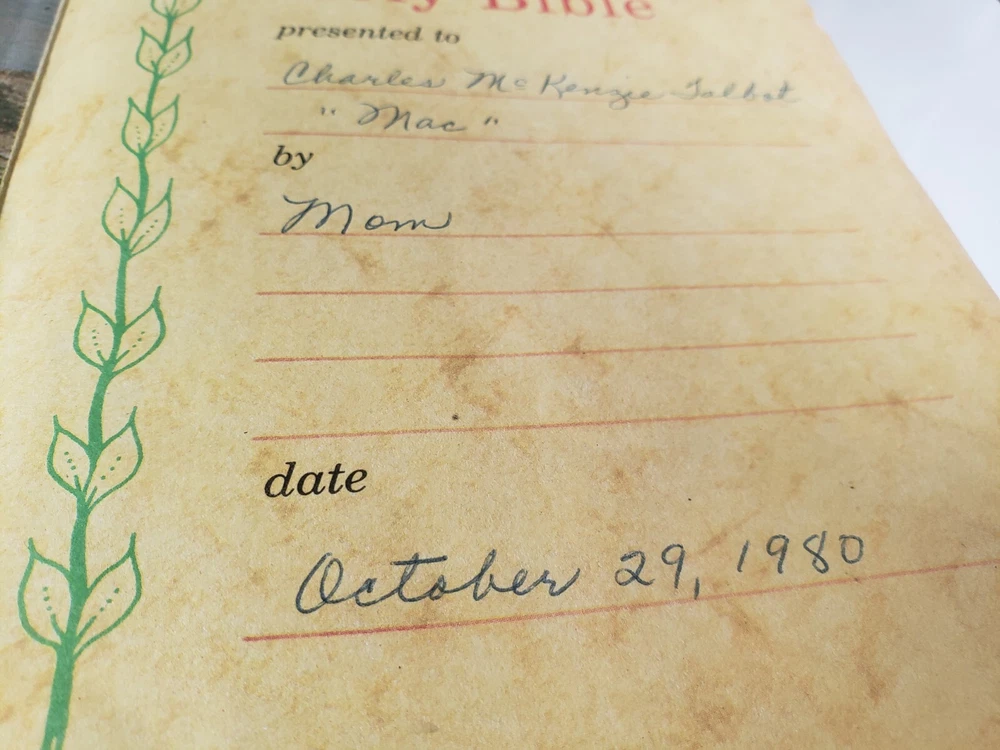 Bible
presented to
Charles McKenzie Talbot
"Mac"
by
Mom
date
October 29, 1980